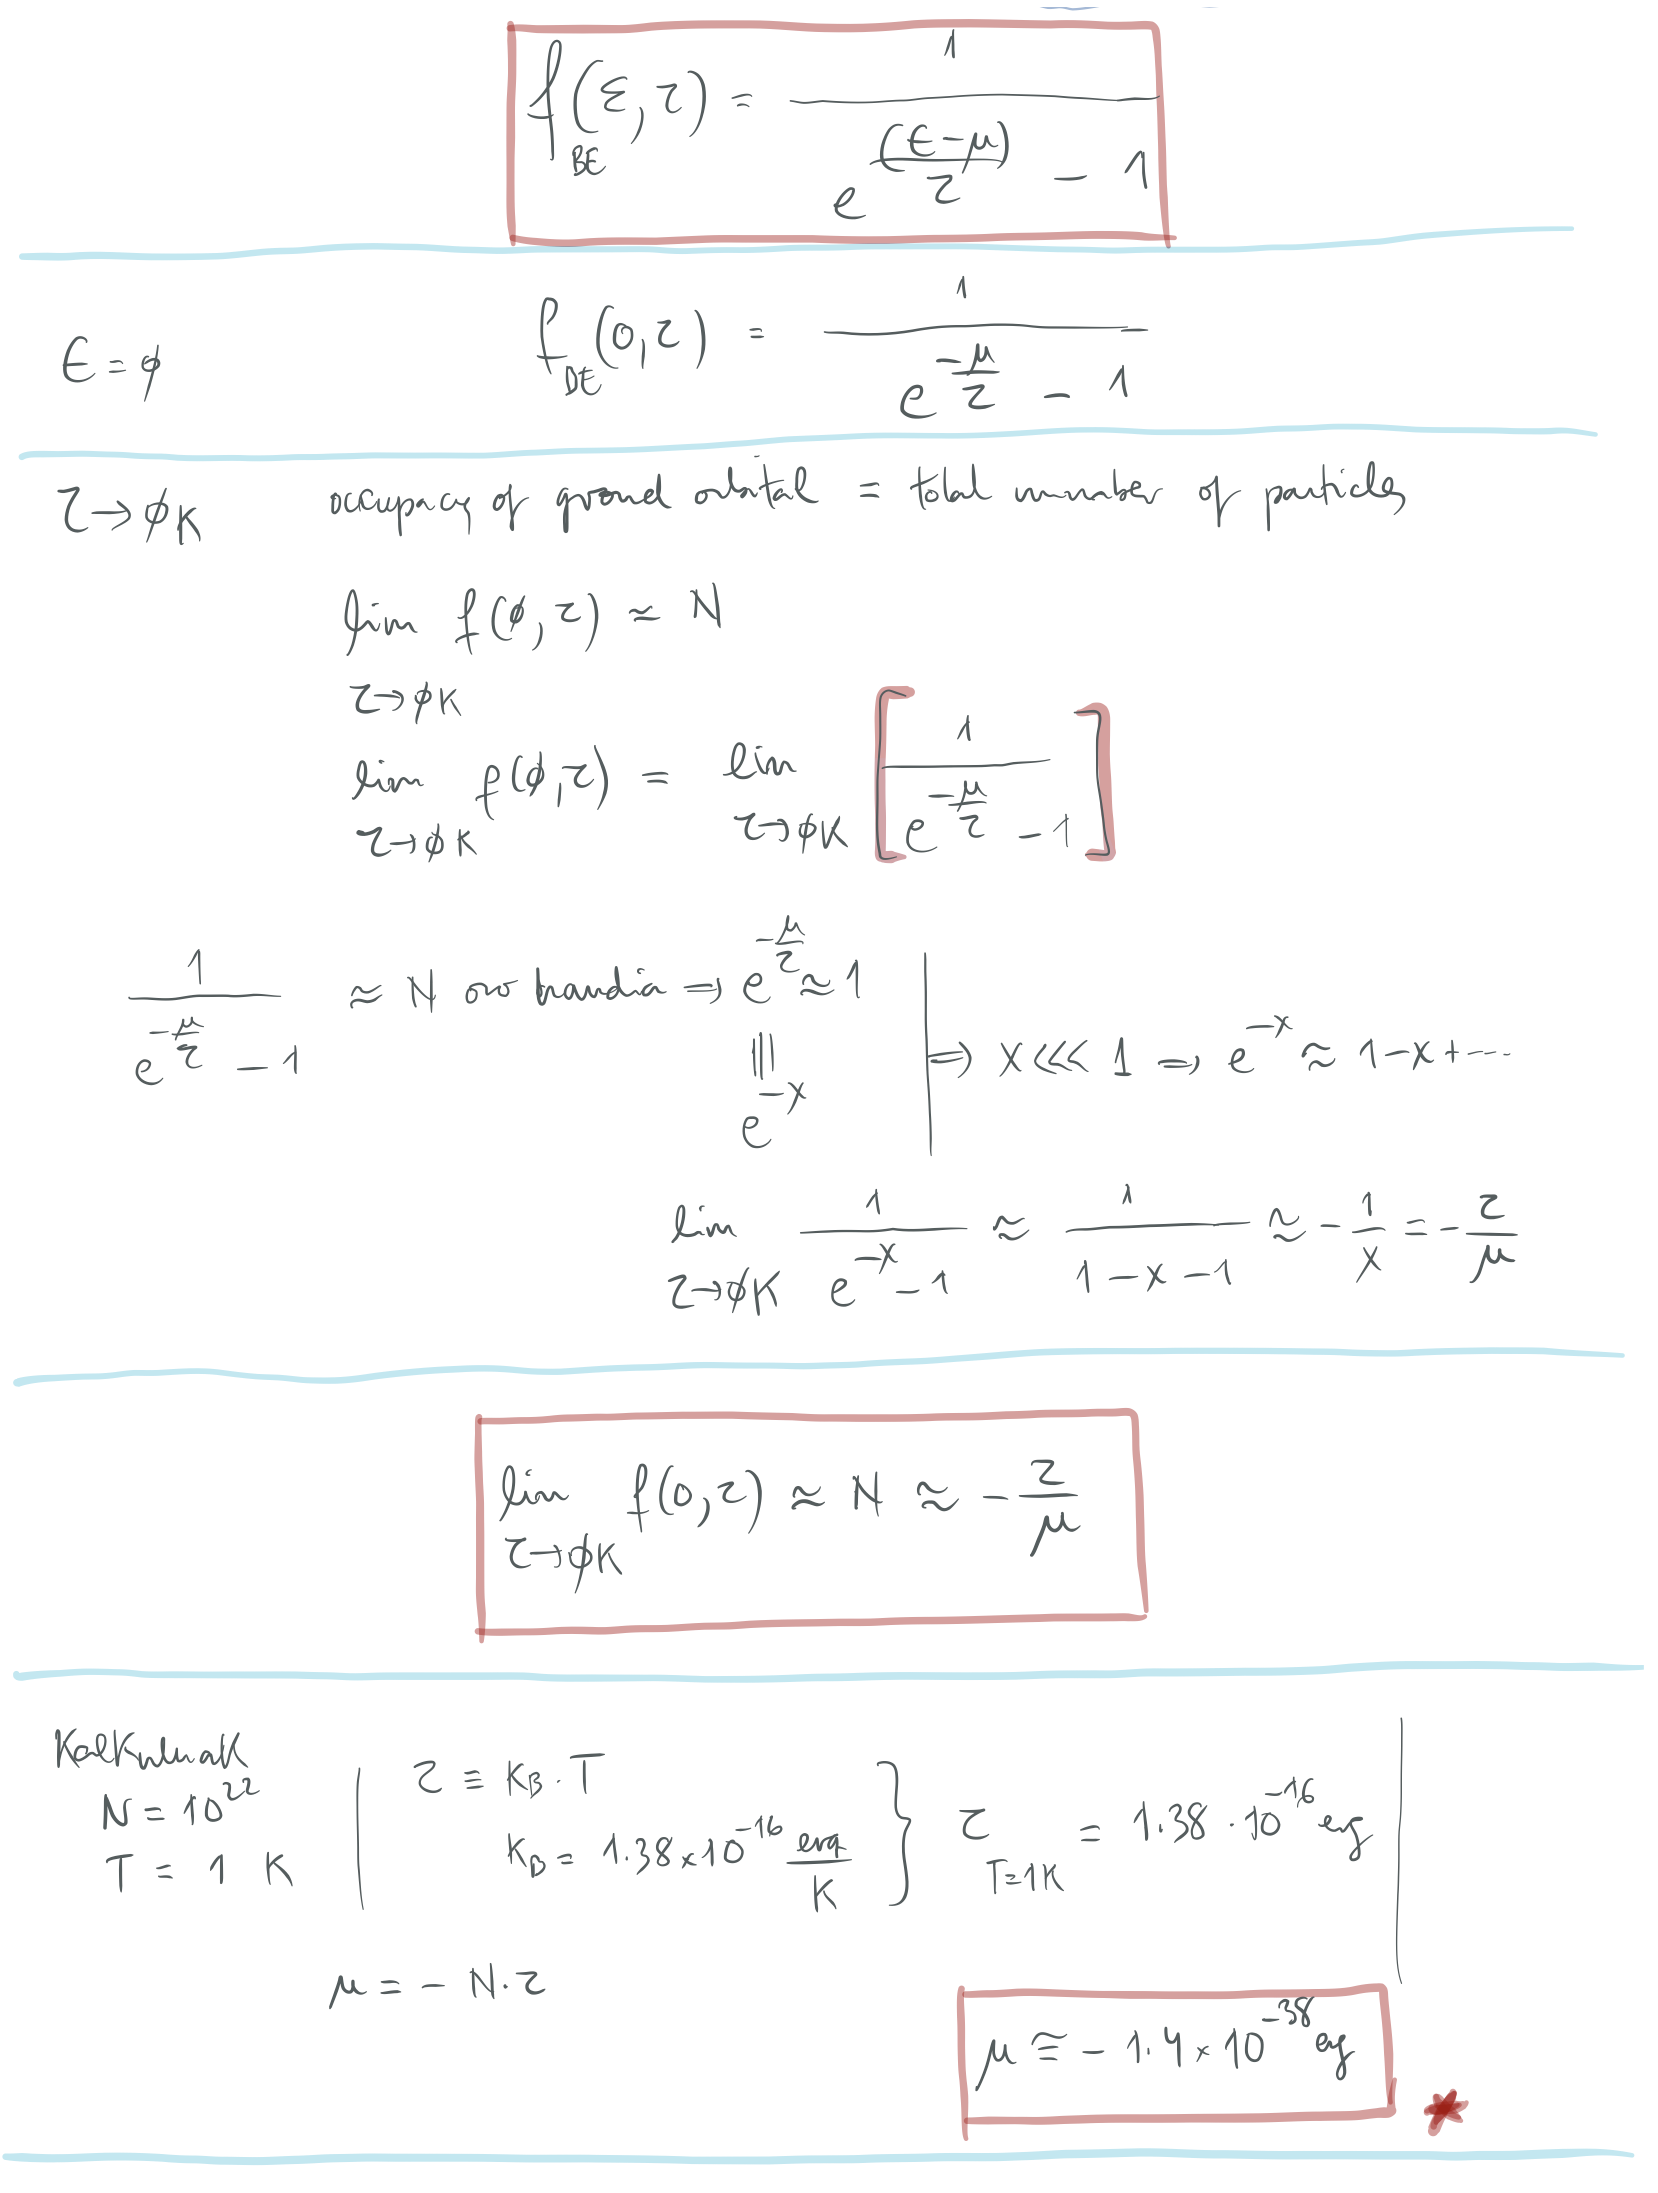 f_BE(ε, τ) = 1 / (e^((ε-μ)/τ) - 1)
ε = ϕ f_BE(0, τ) = 1 / (e^(-μ/τ) - 1)
τ → ϕ K occupacy of ground orbital = total number of particles
lim f(ϕ, τ) ≈ N
τ → ϕ K
lim f(ϕ, τ) = lim [1 / (e^(-μ/τ) - 1)]
τ → ϕ K τ → ϕ K
1 / (e^(-μ/τ) - 1) ≈ N oso handia ⇒ e^(-μ/τ) ≈ 1
||| ⇒ x <<< 1 ⇒ e^(-x) ≈ 1 - x + ----
e^(-x)
lim 1 / (e^(-x) - 1) ≈ 1 / (1 - x - 1) ≈ - 1/x = - τ/μ
τ → ϕ K
lim f(0, τ) ≈ N ≈ - τ/μ
τ → ϕ K
Kalkuluak
N = 10^22
T = 1 K
τ ≡ K_B · T
K_B = 1.38 × 10^(-16) erg/K
τ_(T=1K) = 1.38 · 10^(-16) erg
μ = - N · τ
μ ≅ - 1.4 × 10^(-38) erg
*